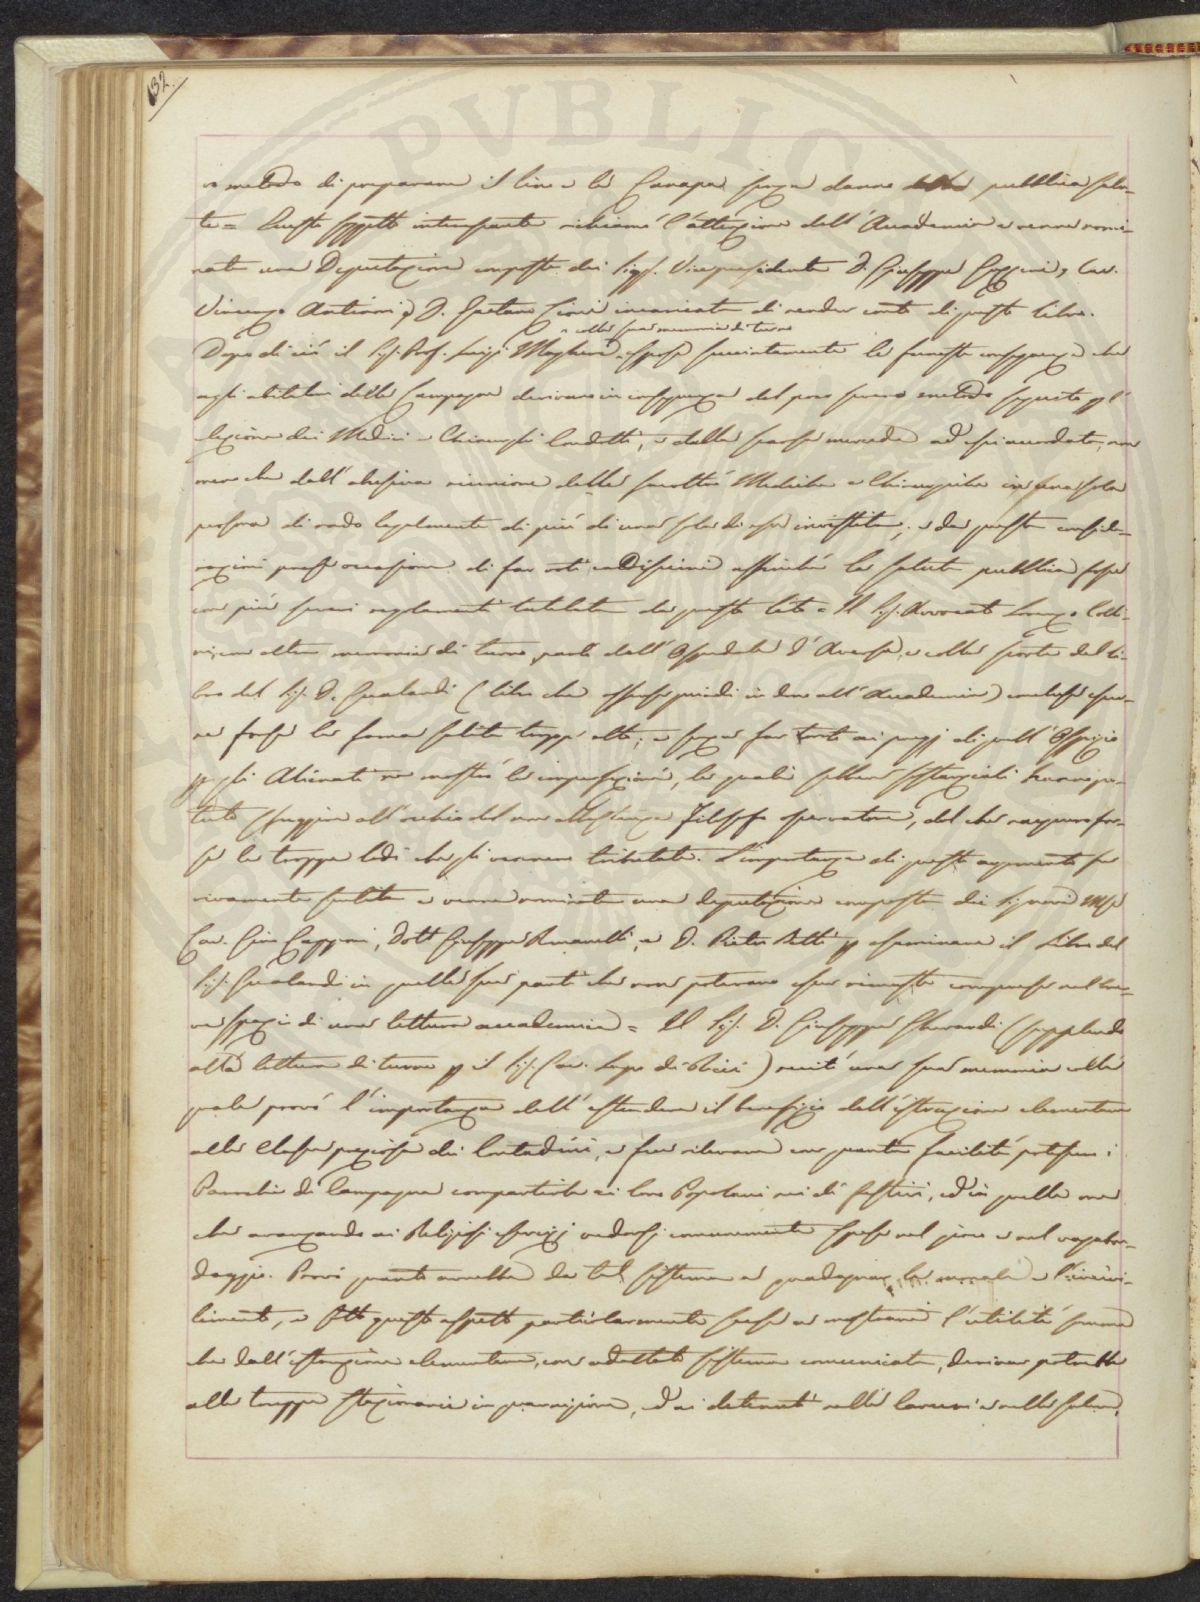 132.
vo metodo di preparare il lino e la Canapa senza danno della pubblica salu-
te = Questo soggetto interessante richiamò l'attenzione dell'Accademia e venne nomi-
nata una Deputazione composta dei Sigg. Vicepresidente D. Giuseppe Gazzeri, Cav.
Vincenzo Antinori, D. Gaetano Cioni incaricata di render conto di questo libro.
e colla sua memoria di turno
Dopo di ciò il Sig. Prof. Luigi Magheri espose succintamente le funeste conseguenze che
agli abitatori della Campagna derivano in conseguenza del poco severo metodo seguito per l'
elezione dei Medici e Chirurghi Condotti, e della scarsa mercede ad essi accordata, non
meno che dall'abusiva riunione delle facoltà Mediche e Chirurgiche in una sola
persona di rado legalmente di più di una sola di esse investita; e da queste conside-
razioni prese occasione di far voti caldissimi affinché la salute pubblica fosse
con più severi regolamenti tutelata da questo lato = Il Sig. Avvocato Lorenzo Colli-
ni, con altra memoria di turno, parlò dell'Ospedale d'Aversa, e colla scorta del li-
bro del Sig. D. Gualandi (libro che offerse quindi in dono all'Accademia) concluse esser-
ne forse la fama salita tropp'alto; e senza far torto ai pregj di quell'Ospizio
per gli Alienati ne mostrò le imperfezioni, le quali sebbene sostanziali hanno po-
tuto sfuggire all'occhio del non abbastanza filosofo osservatore, dal che nacquero for-
se le troppe lodi che gli vennero tributate. L'importanza di questo argomento fu
vivamente sentita e venne nominata una deputazione composta dei Signori Mse
Cav. Gino Capponi, Dott Giuseppe Romanelli, e D. Pietro Betti per esaminare il Libro del
Sig. Gualandi in quelle sue parti che non potevano esser rimaste comprese nel bre-
ve spazio di una lettura accademica = Il Sig. D. Giuseppe Gherardi (supplendo
alla lettura di turno per il Sig. Cav. Lapo de' Ricci) recitò una sua memoria colla
quale provò l'importanza dell'estendere il benefizio dell'istruzione elementare
alla classe preziosa dei Contadini, e fece rilevare con quanta facilità potessero i
Parrochi di Campagna compartirla ai loro Popolani nei dì festivi, ed in quelle ore
che avanzando ai Religiosi esercizj vedonsi comunemente spese nel giuoco e nel vagabon-
daggio. Provò quanto avrebbe da tal sistema a guadagnar la morale e l'incivi-
limento, e sotto questo aspetto particolarmente scese a mostrare l'utilità somma
che dall'istruzione elementare, con adattato sistema comunicata, derivar potrebbe
alle truppe stazionarie in guarnigione, ed ai detenuti nelle carceri e nelle galere,